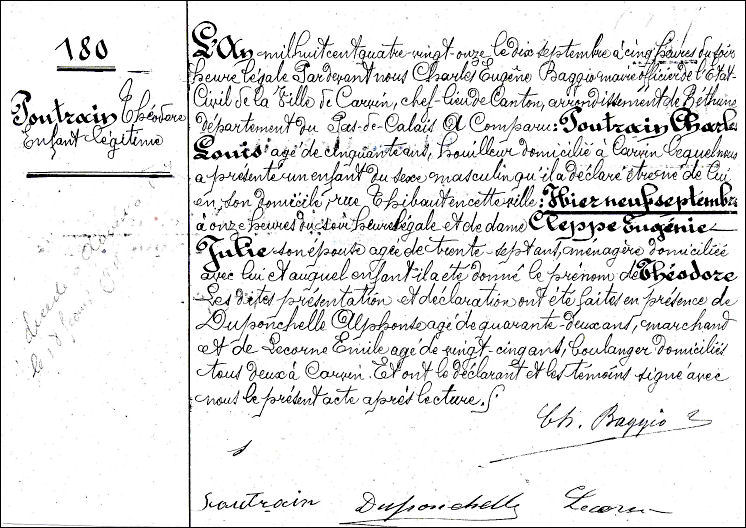 180
Poutrain Théodore
Enfant légitime
L'An mil huit cent quatre-vingt-onze le dix septembre à cinq heures du soir
heure légale Pardevant nous Charles Eugène Baggio maire officier de l'Etat-
Civil de la Ville de Carvin, chef-lieu de Canton, arrondissement de Béthune
département du Pas-de-Calais A Comparu : Poutrain Charles
Louis agé de cinquante ans, houilleur domicilié à Carvin lequel nous
a présenté un enfant du sexe masculin qu'il a déclaré être né de lui
en son domicile, rue Thibaut en cette ville : Hier neuf septembre
à onze heures du soir heure légale et de dame Cleppe Eugénie
Julie son épouse agée de trente-sept ans, ménagère domiciliée
avec lui et auquel enfant il a été donné le prénom de Théodore
Les dites présentation et déclaration ont été faites en présence de
Duponchelle Alphonse agé de quarante-deux ans, marchand
et de Lecorne Emile agé de vingt-cinq ans, boulanger domiciliés
tous deux à Carvin. Et ont le déclarant et les témoins signé avec
nous le présent acte après lecture.
Ch. Baggio
Poutrain Duponchelle Lecorne
décédé à
le 18